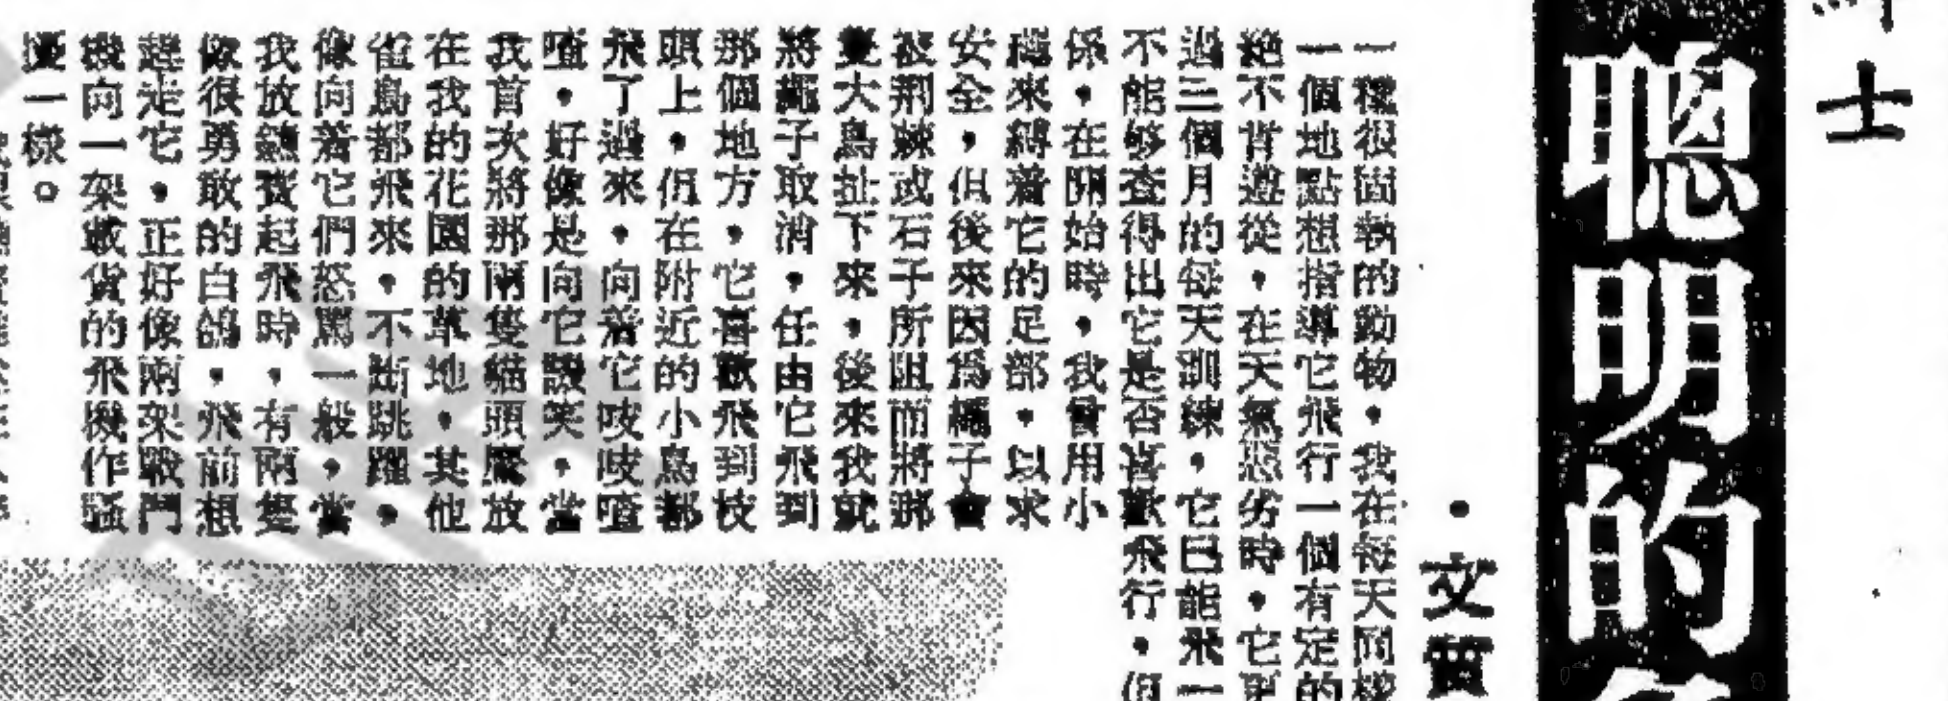 士
聰明的
•文質
一種很固執的動物，我在每天同樣
一個地點想指導它飛行一個有定的
絕不背遵從，在天氣惡劣時，它更
過三個月的每天訓練，它已能飛一
不能够查得出它是否喜歡飛行，但
係，在開始時，我會用小
繩來縛着它的足部，以求
安全，但後來因爲繩子會
被荆棘或石子所阻而將那
隻大鳥扯下來，後來我就
將繩子取消，任由它飛到
那個地方，它喜歡飛到枝
頭上，但在附近的小鳥都
飛了過來，向着它吱吱喳
喳，好像是向它譏笑，當
我首次將那兩隻貓頭鷹放
在我的花園的草地，其他
雀鳥都飛來，不斷跳躍，
像向着它們怒罵一般，當
我放鷹起飛時，有兩隻
像很勇敢的白鴿，飛前想
趕走它，正好像兩架戰鬥
機向一架載貨的飛機作騷
擾一樣。